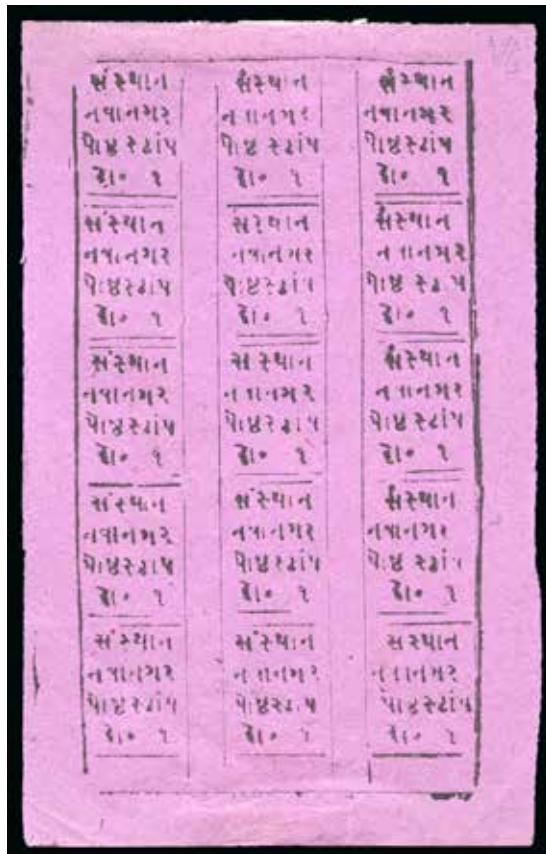 સંસ્થાન
નવાનગર
પોષ્ટ સ્ટાંપ
દો૦ ૧
સંસ્થાન
નવાનગર
પોષ્ટ સ્ટાંપ
દો૦ ૧
સંસ્થાન
નવાનગર
પોષ્ટ સ્ટાંપ
દો૦ ૧
સંસ્થાન
નવાનગર
પોષ્ટ સ્ટાંપ
દો૦ ૧
સંસ્થાન
નવાનગર
પોષ્ટ સ્ટાંપ
દો૦ ૧
સંસ્થાન
નવાનગર
પોષ્ટ સ્ટાંપ
દો૦ ૧
સંસ્થાન
નવાનગર
પોષ્ટ સ્ટાંપ
દો૦ ૧
સંસ્થાન
નવાનગર
પોષ્ટ સ્ટાંપ
દો૦ ૧
સંસ્થાન
નવાનગર
પોષ્ટ સ્ટાંપ
દો૦ ૧
સંસ્થાન
નવાનગર
પોષ્ટ સ્ટાંપ
દો૦ ૧
સંસ્થાન
નવાનગર
પોષ્ટ સ્ટાંપ
દો૦ ૧
સંસ્થાન
નવાનગર
પોષ્ટ સ્ટાંપ
દો૦ ૧
સંસ્થાન
નવાનગર
પોષ્ટ સ્ટાંપ
દો૦ ૧
સંસ્થાન
નવાનગર
પોષ્ટ સ્ટાંપ
દો૦ ૧
સંસ્થાન
નવાનગર
પોષ્ટ સ્ટાંપ
દો૦ ૧